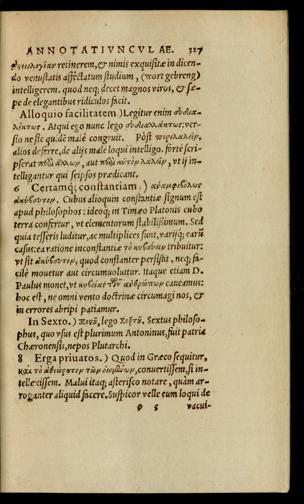 ANNOTATIVNCVLAE. 327
retinerem, & nimis exquisitæ in dicen-
do venustatis affectatum studium, (wort gebreng)
intelligerem. quod neq; decet magnos viros, & sæ-
pe de elegantibus ridiculos facit.
Alloquio facilitatem.) Legitur enim
Atqui ego nunc lego ver-
sio ne sic quidē malè congruit. Pòst
alios deferre, de alijs malè loqui intelligo. fortè scri-
pserat aut vt ij in-
telligantur qui seipsos prædicant.
6 Certamq; constantiam.)
Cubus alioquin constantiæ signum est
apud philosophos: ideoq; in Timæo Platonis cubo
terra confertur, vt elementorum stabilissimum. Sed
quia tesseris luditur, ac multiplices sunt, varijq; earū
casus: ea ratione inconstantiæ tribuitur:
vt sit quod constanter persistit, neq; fa-
cilè mouetur aut circumuoluitur. itaque etiam D.
Paulus monet, vt caueamus:
hoc est, ne omni vento doctrinæ circumagi nos, &
in errores abripi patiamur.
In Sexto.) lego Sextus philoso-
phus, quo vsus est plurimum Antoninus, fuit patria
Chæronensis, nepos Plutarchi.
8 Erga priuatos.) Quod in Græco sequitur,
convertissem, si in-
tellexissem. Malui itaq; asterisco notare, quàm ar-
roganter aliquid facere. Suspicor velle eum loqui de
vacui-